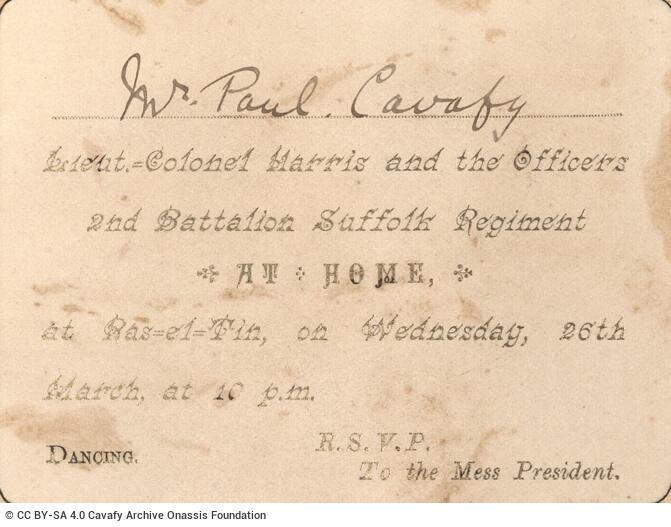 Mr. Paul. Cavafy
Lieut.=Colonel Harris and the Officers
2nd Battalion Suffolk Regiment
AT HOME,
at Ras=el=Tin, on Wednesday, 26th
March, at 10 p.m.
DANCING.
R.S.V.P.
To the Mess President.
© CC BY-SA 4.0 Cavafy Archive Onassis Foundation